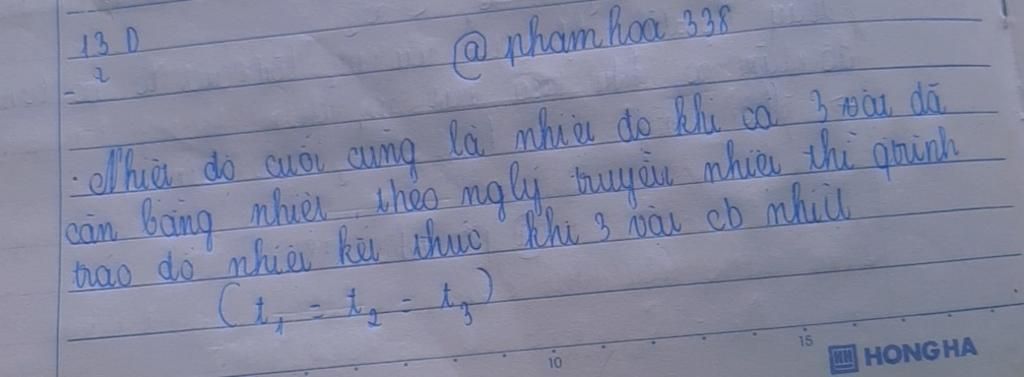 13 D @ phamhoa 338
2
. Nhiệt độ cuối cùng là nhiệt độ khi cả 3 vật đã
cân bằng nhiệt. theo ngly truyền nhiệt thì qtrinh
trao đổ nhiệt kết thúc khi 3 vật cb nhiệt
(t₁ = t₂ = t₃)
10 15 HH HONG HA